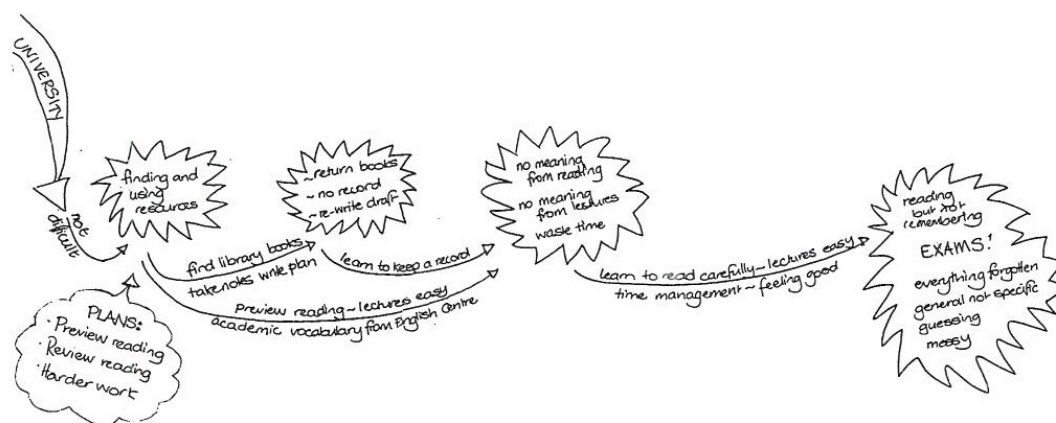 UNIVERSITY
not
difficult
finding and
using
resources
PLANS:
· Preview reading
· Review reading
· Harder work
find library books
take notes write plan
preview reading ~ lectures easy
academic vocabulary from English Centre
~ return books
~ no record
~ re-write draft
learn to keep a record
no meaning
from reading
no meaning
from lectures
waste time
learn to read carefully ~ lectures easy
time management ~ feeling good
reading
but not
remembering
EXAMS!
everything forgotten
general not specific
guessing
messy